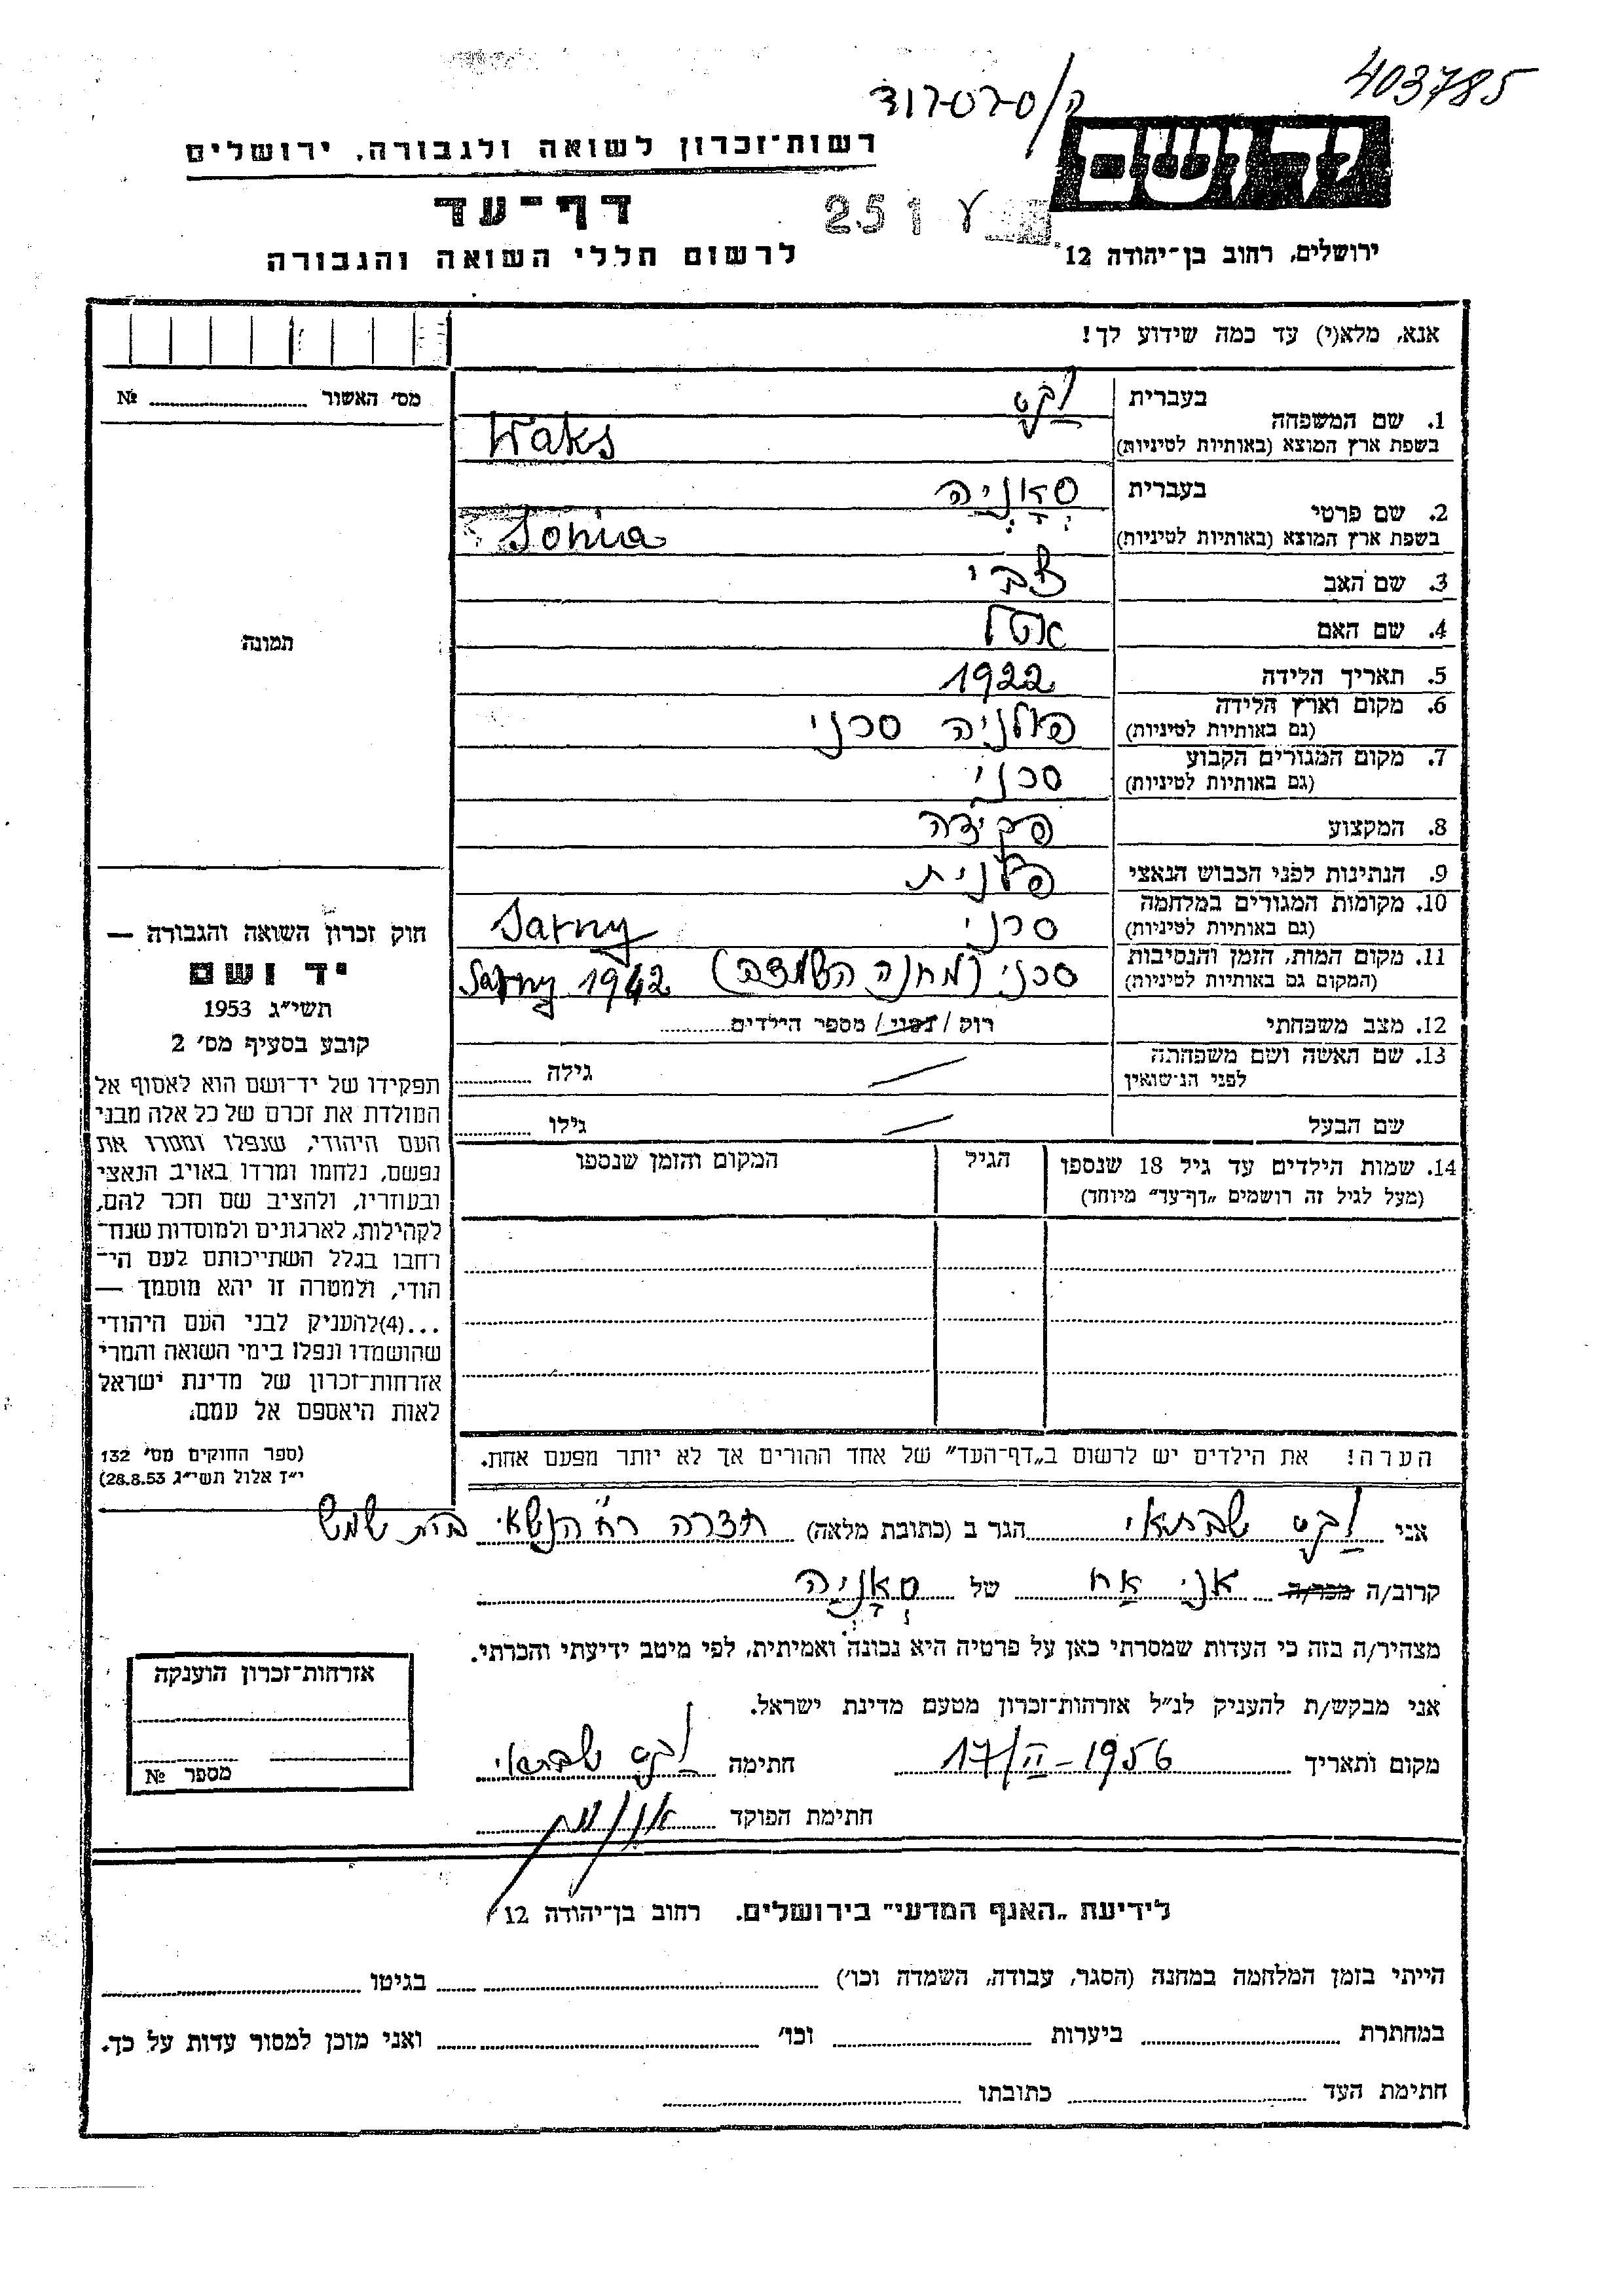 403785
ידושם
רשות־זכרון לשואה ולגבורה, ירושלים
דף־עד
251 ע
לרשום חללי השואה והגבורה
ירושלים, רחוב בן־יהודה 12
אנא, מלא(י) עד כמה שידוע לך!
מס׳ האשור № 
1. שם המשפחה
בעברית וקס
בשפת ארץ המוצא (באותיות לטיניות) Waks
2. שם פרטי
בעברית סאניה
בשפת ארץ המוצא (באותיות לטיניות) Sonia
3. שם האב צבי
4. שם האם אטל
5. תאריך הלידה 1922
6. מקום וארץ הלידה פולניה סרני
(גם באותיות לטיניות)
7. מקום המגורים הקבוע סרני
(גם באותיות לטיניות)
8. המקצוע פקידה
9. הנתינות לפני הכבוש הנאצי פלנית
10. מקומות המגורים במלחמה סרני Sarny
(גם באותיות לטיניות)
11. מקום המות, הזמן והנסיבות סרני (מחנה השמדה) Sarny 1942
(המקום גם באותיות לטיניות)
12. מצב משפחתי רוק / נשוי / מספר הילדים
13. שם האשה ושם משפחתה גילה
לפני הנישואין
שם הבעל גילו
14. שמות הילדים עד גיל 18 שנספו הגיל המקום והזמן שנספו
(מעל לגיל זה רושמים „דף־עד״ מיוחד)
תמונה
חוק זכרון השואה והגבורה —
יד ושם
תשי״ג 1953
קובע בסעיף מס׳ 2
תפקידו של יד־ושם הוא לאסוף אל
המולדת את זכרם של כל אלה מבני
העם היהודי, שנפלו ומסרו את
נפשם, נלחמו ומרדו באויב הנאצי
ובעוזריו, ולהציב שם וזכר להם,
לקהילות, לארגונים ולמוסדות שנח־
רחבו בגלל השתייכותם לעם הי־
הודי, ולמטרה זו יהא מוסמך —
...(4)להעניק לבני העם היהודי
שהושמדו ונפלו בימי השואה והמרי
אזרחות־זכרון של מדינת ישראל
לאות היאספם אל עמם.
(ספר החוקים מס׳ 132
י״ז אלול תשי״ג 28.8.53)
הערה! את הילדים יש לרשום ב„דף־העד״ של אחד ההורים אך לא יותר מפעם אחת.
אני וקס שבתאי הגר ב (כתובת מלאה) חדרה רח׳ הנשאי בית שמש
קרוב/ה מכר/ה אני אח של סאניה
מצהיר/ה בזה כי העדות שמסרתי כאן על פרטיה היא נכונה ואמיתית, לפי מיטב ידיעתי והכרתי.
אני מבקש/ת להעניק לנ״ל אזרחות־זכרון מטעם מדינת ישראל.
מקום ותאריך 17/II-1956 חתימה וקס שבתאי
חתימת הפוקד
אזרחות־זכרון הוענקה
מספר №
לידיעת „האגף המדעי״ בירושלים. רחוב בן־יהודה 12
הייתי בזמן המלחמה במחנה (הסגר, עבודה, השמדה וכו׳) בגיטו
במחתרת ביערות וכו׳ ואני מוכן למסור עדות על כך.
חתימת העד כתובתו